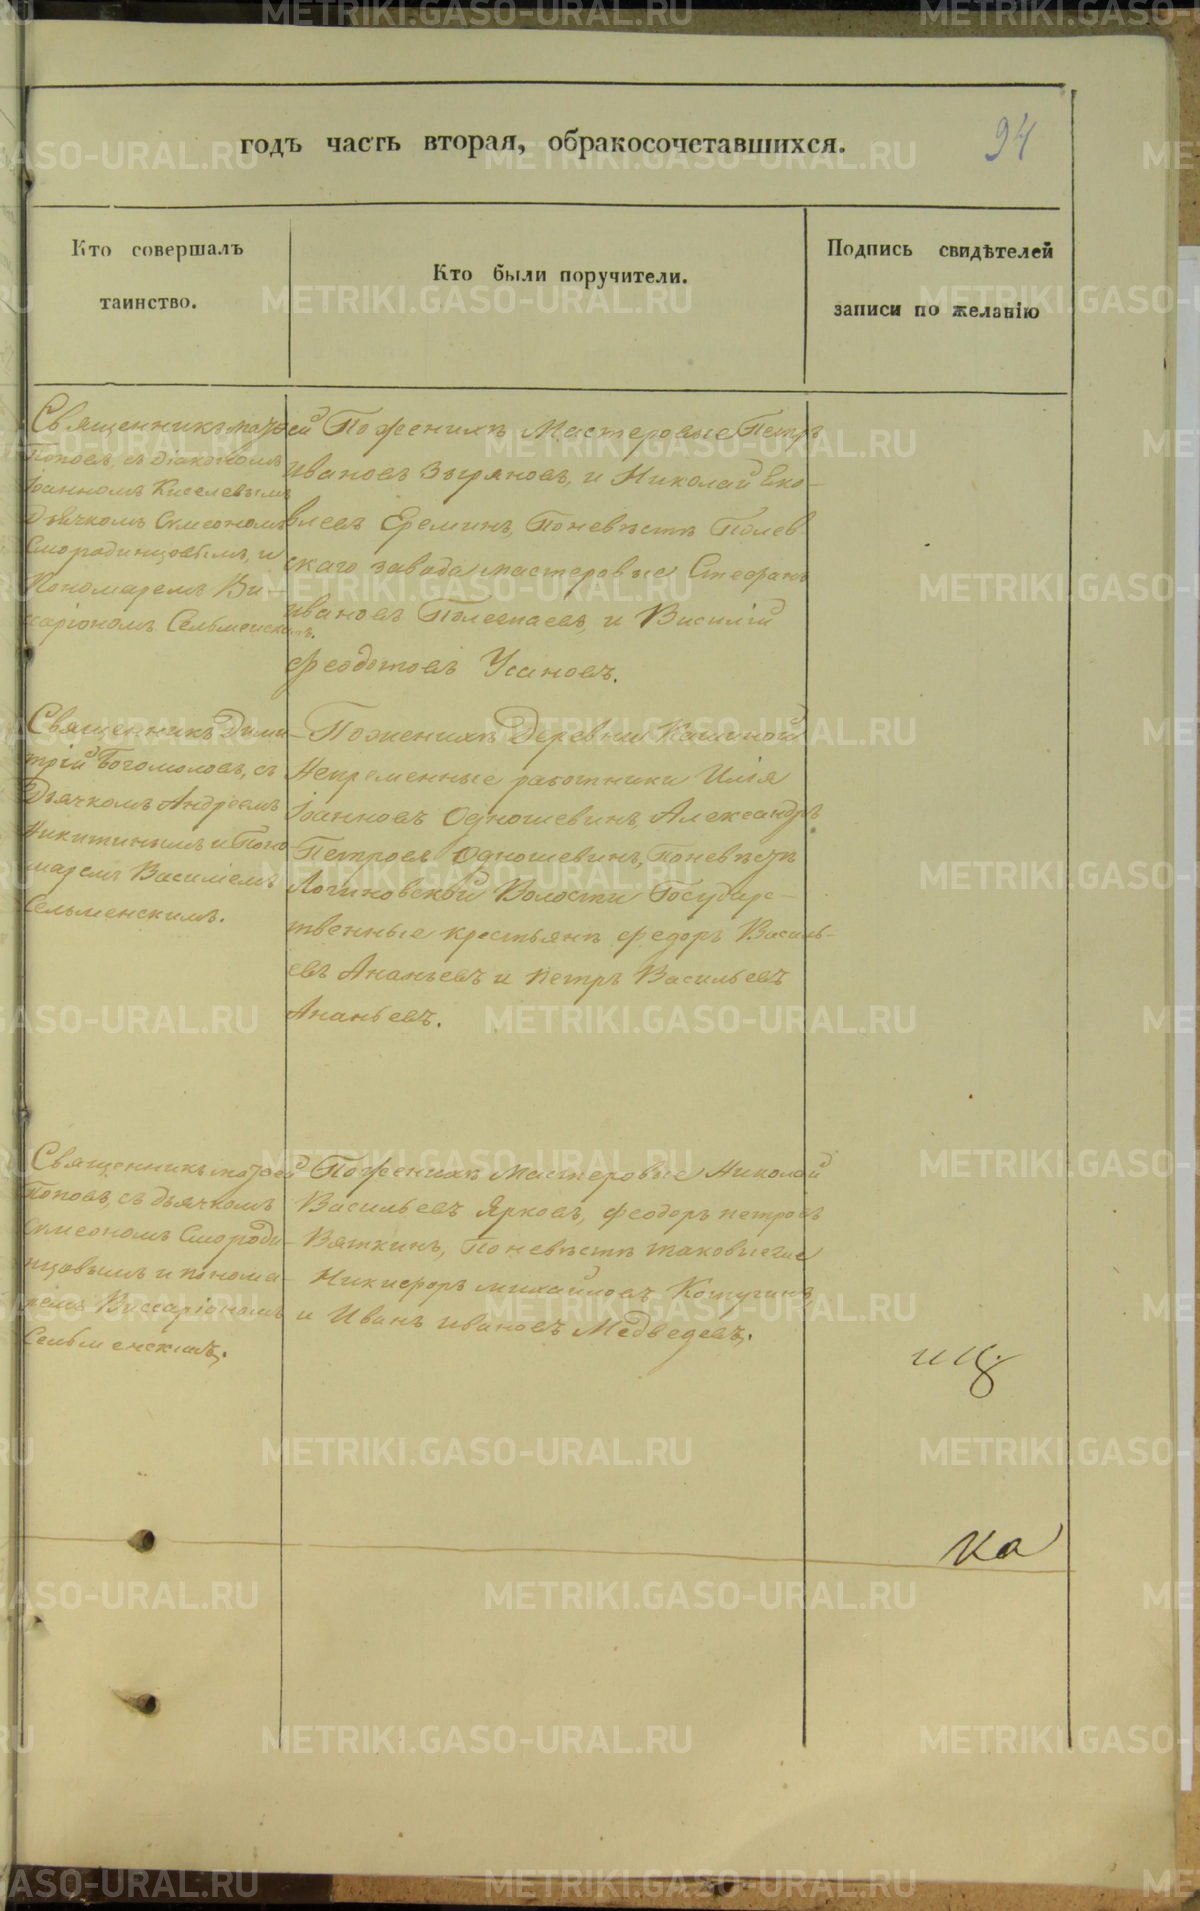 годъ часть вторая, обракосочетавшихся.
94
Кто совершалъ
таинство.
Кто были поручители.
Подпись свидѣтелей
записи по желанію
Священникъ Матѳей
Поповъ, съ Діакономъ
Іоанномъ Киселевымъ
Дьячкомъ Сѵмеономъ
Смородинцовымъ, и
Пономаремъ Ви-
саріономъ Сельменскимъ.
По женихѣ Мастеровые Петръ
Ивановъ Зыряновъ, и Николай Яко-
влевъ Ереминъ, По невѣстѣ Полев
скаго завода мастеровые Стефанъ
Ивановъ и Василій
Феодотовъ Усановъ.
Священникъ Дими-
трій Богомоловъ, съ
Дьячкомъ Андреемъ
Никитинымъ и Поно
маремъ Василіемъ
Сельменскимъ.
По женихѣ Деревни
Непременные работники Илія
Іоанновъ Одношевинъ, Александръ
Петровъ Одношевинъ, По невѣстѣ
Логиновской Волости Государс-
твенные крестьянѣ Федоръ Василь-
евъ Ананьевъ и Петръ Васильевъ
Ананьевъ.
Священникъ Матѳей
Поповъ, съ дьячкомъ
Сѵмеономъ Смороди-
нцовымъ и понома-
ремъ Виссаріономъ
Сельменскимъ.
По женихѣ Мастеровые Николай
Васильевъ Ярковъ, Феодоръ Петровъ
Вяткинъ, По невѣстѣ таковые же
Никифоръ Михайловъ Кожугинъ
и Иванъ Ивановъ Медведевъ.
Ка
METRIKI.GASO-URAL.RU